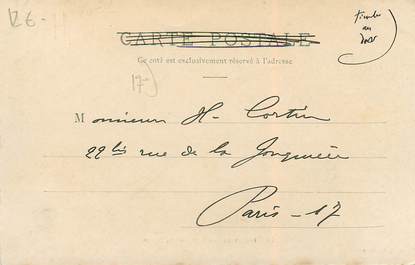 12 €-
timbre
au
dos
CARTE POSTALE
Ce coté est exclusivement réservé à l'adresse
17
Monsieur H. Cortin
22 bis rue de la Jonquière
Paris - 17